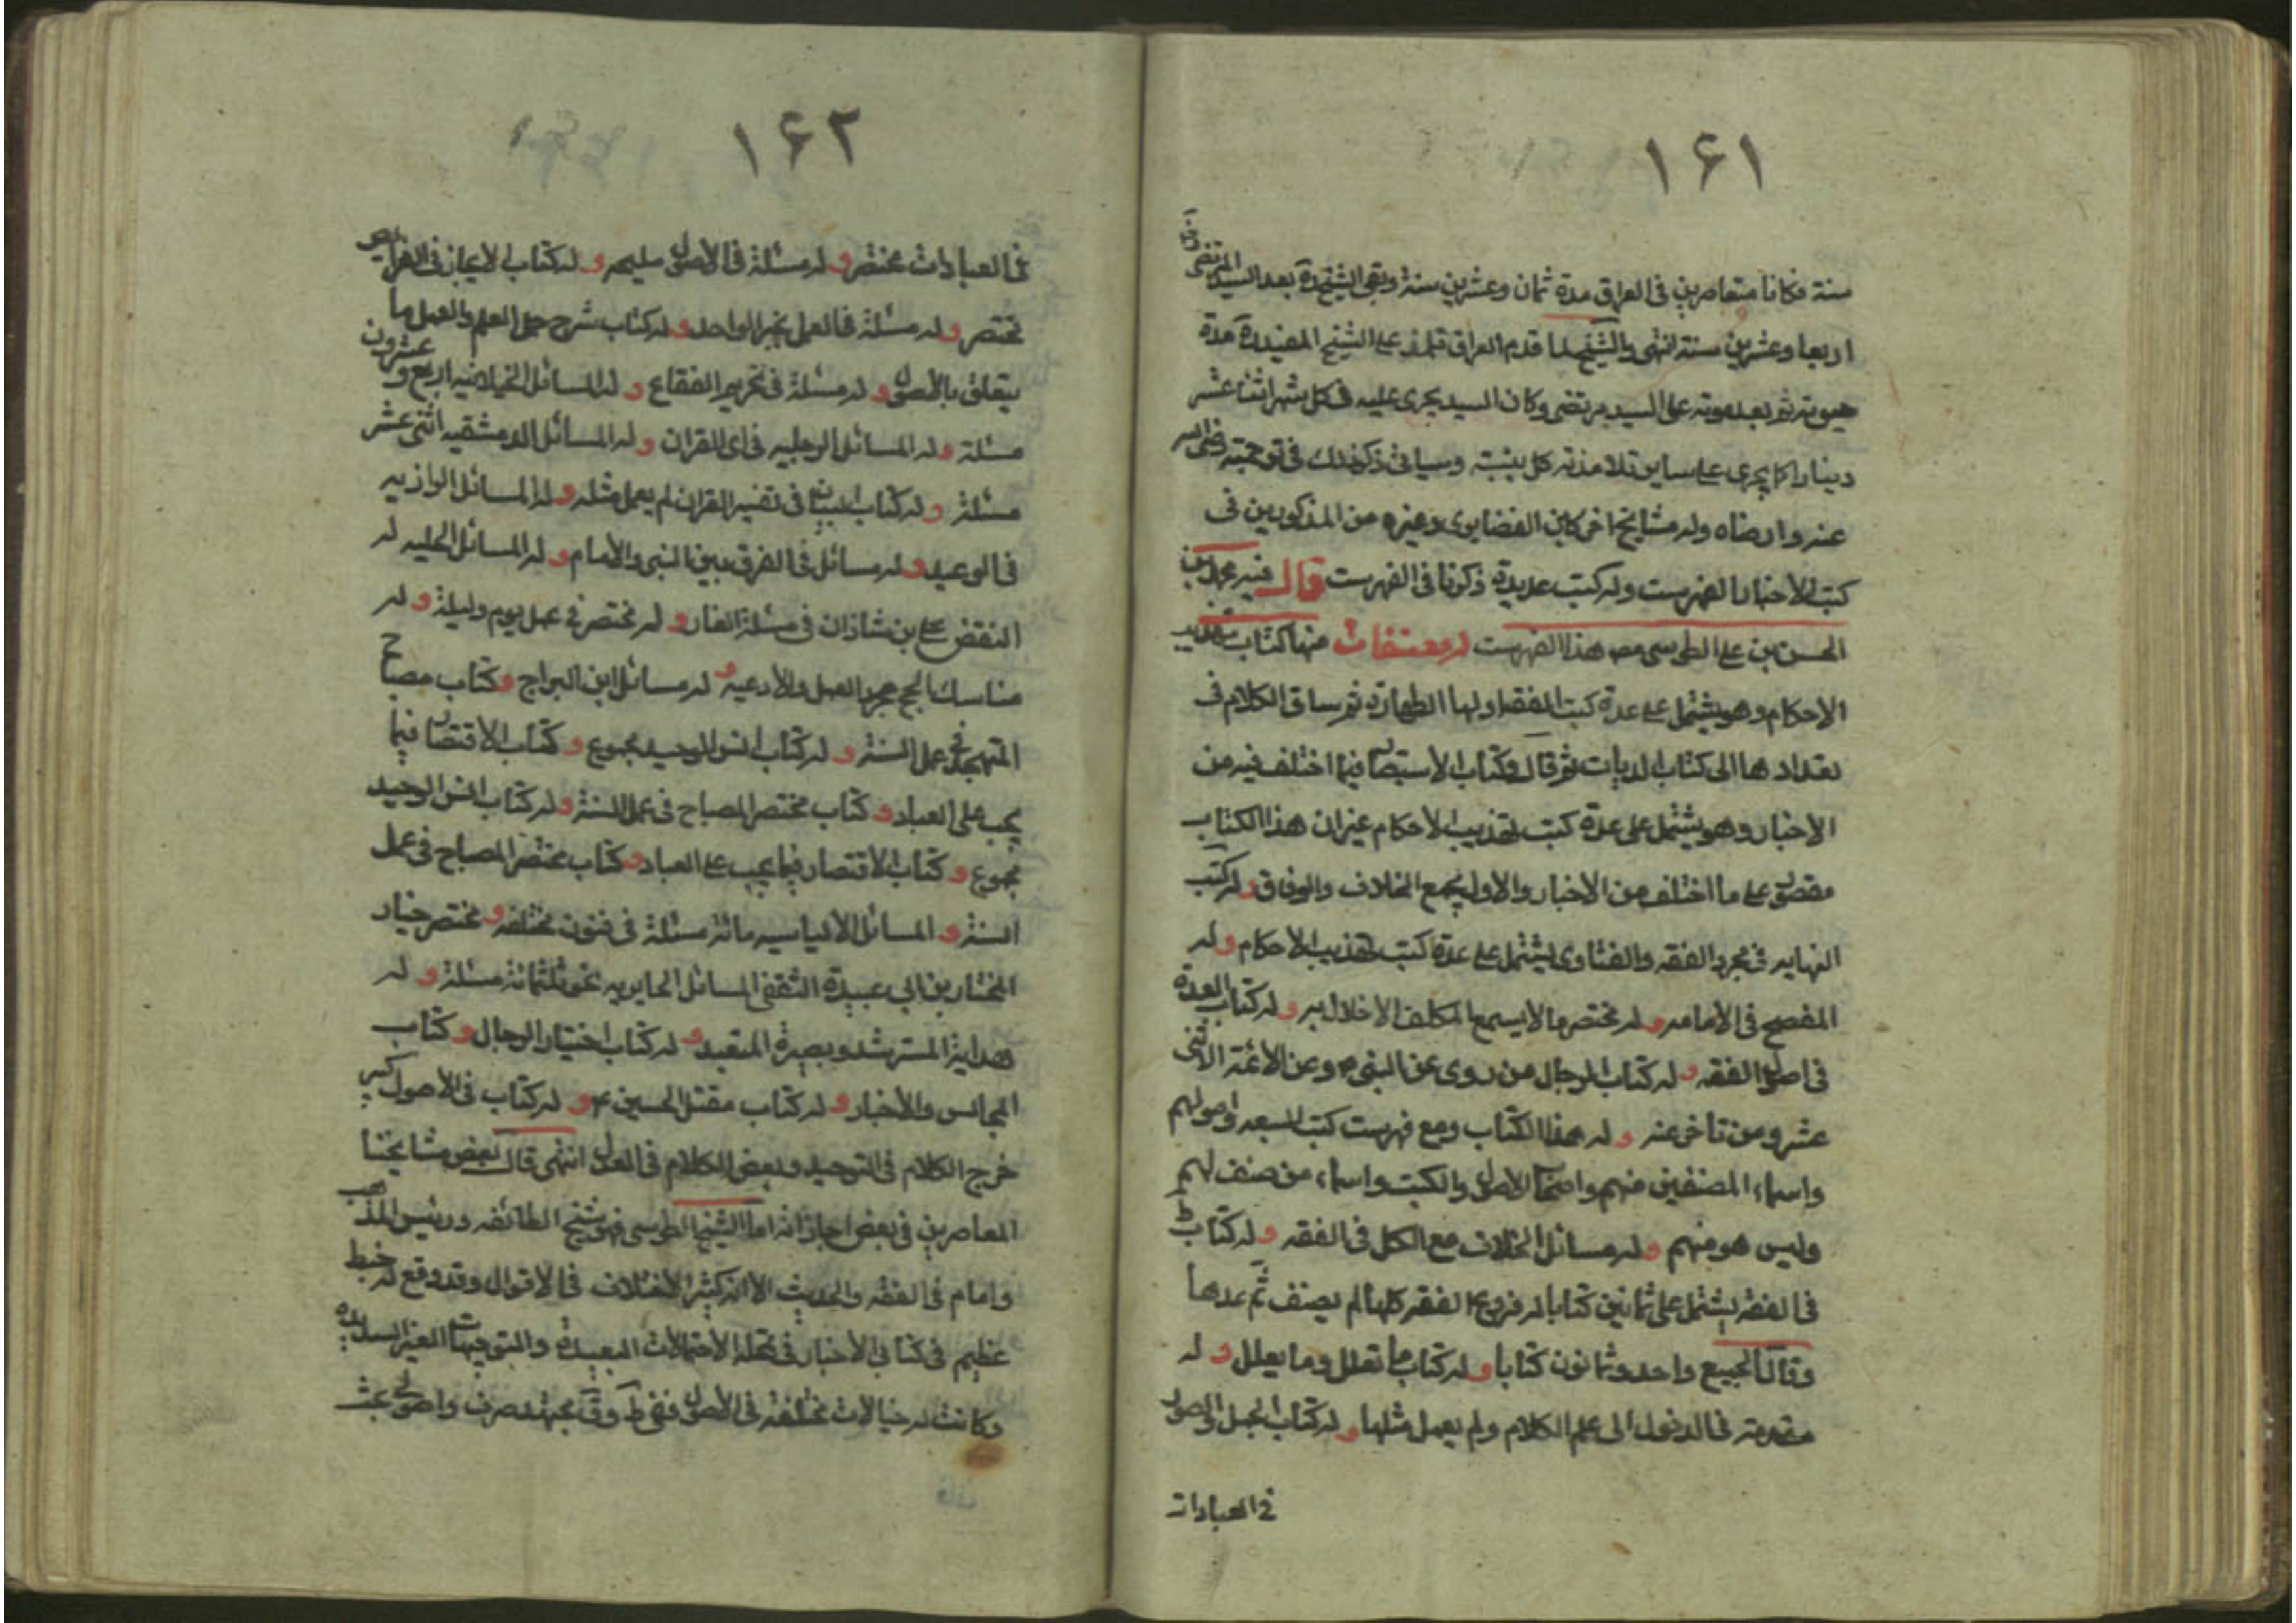 ١٦١
سنة فكانا متعاصرين في العراق مدة ثمان وعشرين سنة وبقي الشيخ ره بعد السيد المرتضى
اربعا وعشرين سنة انتهى والشيخ لما قدم العراق تلمذ على الشيخ المفيد ره مدة
حيوته ثم بعد موته على السيد مرتضى وكان السيد يجرى عليه في كل شهر اثنا عشر
دينارا كما يجرى على ساير تلامذته كل بنسبته وسياتي ذكر ذلك في ترجمته رضى الله
عنه وارضاه وله مشايخ اخر كابن الغضايرى وغيره من المذكورين في
كتب الاخبار الفهرست وله كتب عديدة ذكرنا في الفهرست قال فيه محمد بن
الحسن بن على الطوسى مص هذا الفهرست له مصنفات منها كتاب تهذيب
الاحكام وهو يشتمل على عدة كتب الفقه اولها الطهارة ثم ساق الكلام في
تعدادها الى كتاب الديات ثم قال وكتاب الاستبصار فيما اختلف فيه من
الاخبار وهو يشتمل على عدة كتب تهذيب الاحكام غير ان هذا الكتاب
مقصور على ما اختلف من الاخبار والاول يجمع الخلاف والوفاق وله كتب
النهايه في مجرد الفقه والفتاوى يشتمل على عدة كتب تهذيب الاحكام وله
المفصح في الامامه وله مختصر ما لا يسع المكلف الاخلال به وله كتاب العدة
في اصول الفقه وله كتاب الرجال من روى عن النبي ص وعن الائمة الاثنى
عشر ومن تاخر عنه وله هذا الكتاب ومع فهرست كتب الشيعه واصولهم
واسماء المصنفين منهم واصحاب الاصول والكتب واسماء من صنف لهم
وليس هو منهم وله مسائل الخلاف مع الكل في الفقه وله كتاب ط
في الفقه يشتمل على ثمانين كتابا له فروع الفقه كلها لم يصنف ثم عدها
وقال الجميع واحد وثمانون كتابا وله كتاب ما تعلل وما يعلل وله
مقدمة في الدخول الى علم الكلام ولم يعمل مثلها وله كتاب الجمل والعقود
في العبادات
١٦٢
في العبادات مختصر وله مسئلة في الاصول مليحه وله كتاب الايجاز في الفرايض
مختصر وله مسئلة في العمل بخبر الواحد وله كتاب شرح جمل العلم والعمل ما
يتعلق بالاصول وله مسئلة في تحريم الفقاع وله المسائل الخيلانيه اربع وعشرون
مسئلة وله المسائل الرجبيه في اى القران وله المسائل الدمشقيه اثنى عشر
مسئلة وله كتاب التبيان في تفسير القران لم يعمل مثله وله المسائل الرازيه
في الوعيد وله مسائل في الفرق بين النبى والامام وله المسائل الحلبيه له
النقض على بن شاذان في مسئلة الغار وله مختصر في عمل يوم وليلة وله
مناسك الحج مجرد العمل والادعيه وله مسائل ابن البراج وكتاب مصباح
المتهجد في عمل السنة وله كتاب انس الوحيد مجموع وكتاب الاقتصار فيما
يجب على العباد وكتاب مختصر المصباح في عمل السنة وله كتاب انس الوحيد
مجموع وكتاب الاقتصار فيما يجب على العباد وكتاب مختصر المصباح في عمل
السنة والمسائل الالياسيه مائة مسئلة في فنون مختلفه ومختصر اخبار
المختار بن ابي عبيدة الثقفى المسائل الحايريه نحو ثلثمائة مسئلة وله
هداية المسترشد وبصيرة المتعبد وله كتاب اختيار الرجال وكتاب
المجالس والاخبار وله كتاب مقتل الحسين ع وله كتاب في الاصول كبير
خرج الكلام في التوحيد وبعض الكلام في العدل انتهى قال بعض مشايخنا
المعاصرين في بعض اجازاته اما الشيخ الطوسى فهو شيخ الطائفه ورئيس المذهب
وامام في الفقه والحديث الا انه كثير الاختلاف في الاقوال وقد وقع له خبط
عظيم في كتابي الاخبار في تمحله الاحتمالات البعيدة والتوجيهات الغير السديدة
وكانت له خيالات مختلفه في الاصول ففي ط وف مجتهد صرف واصولى بحت